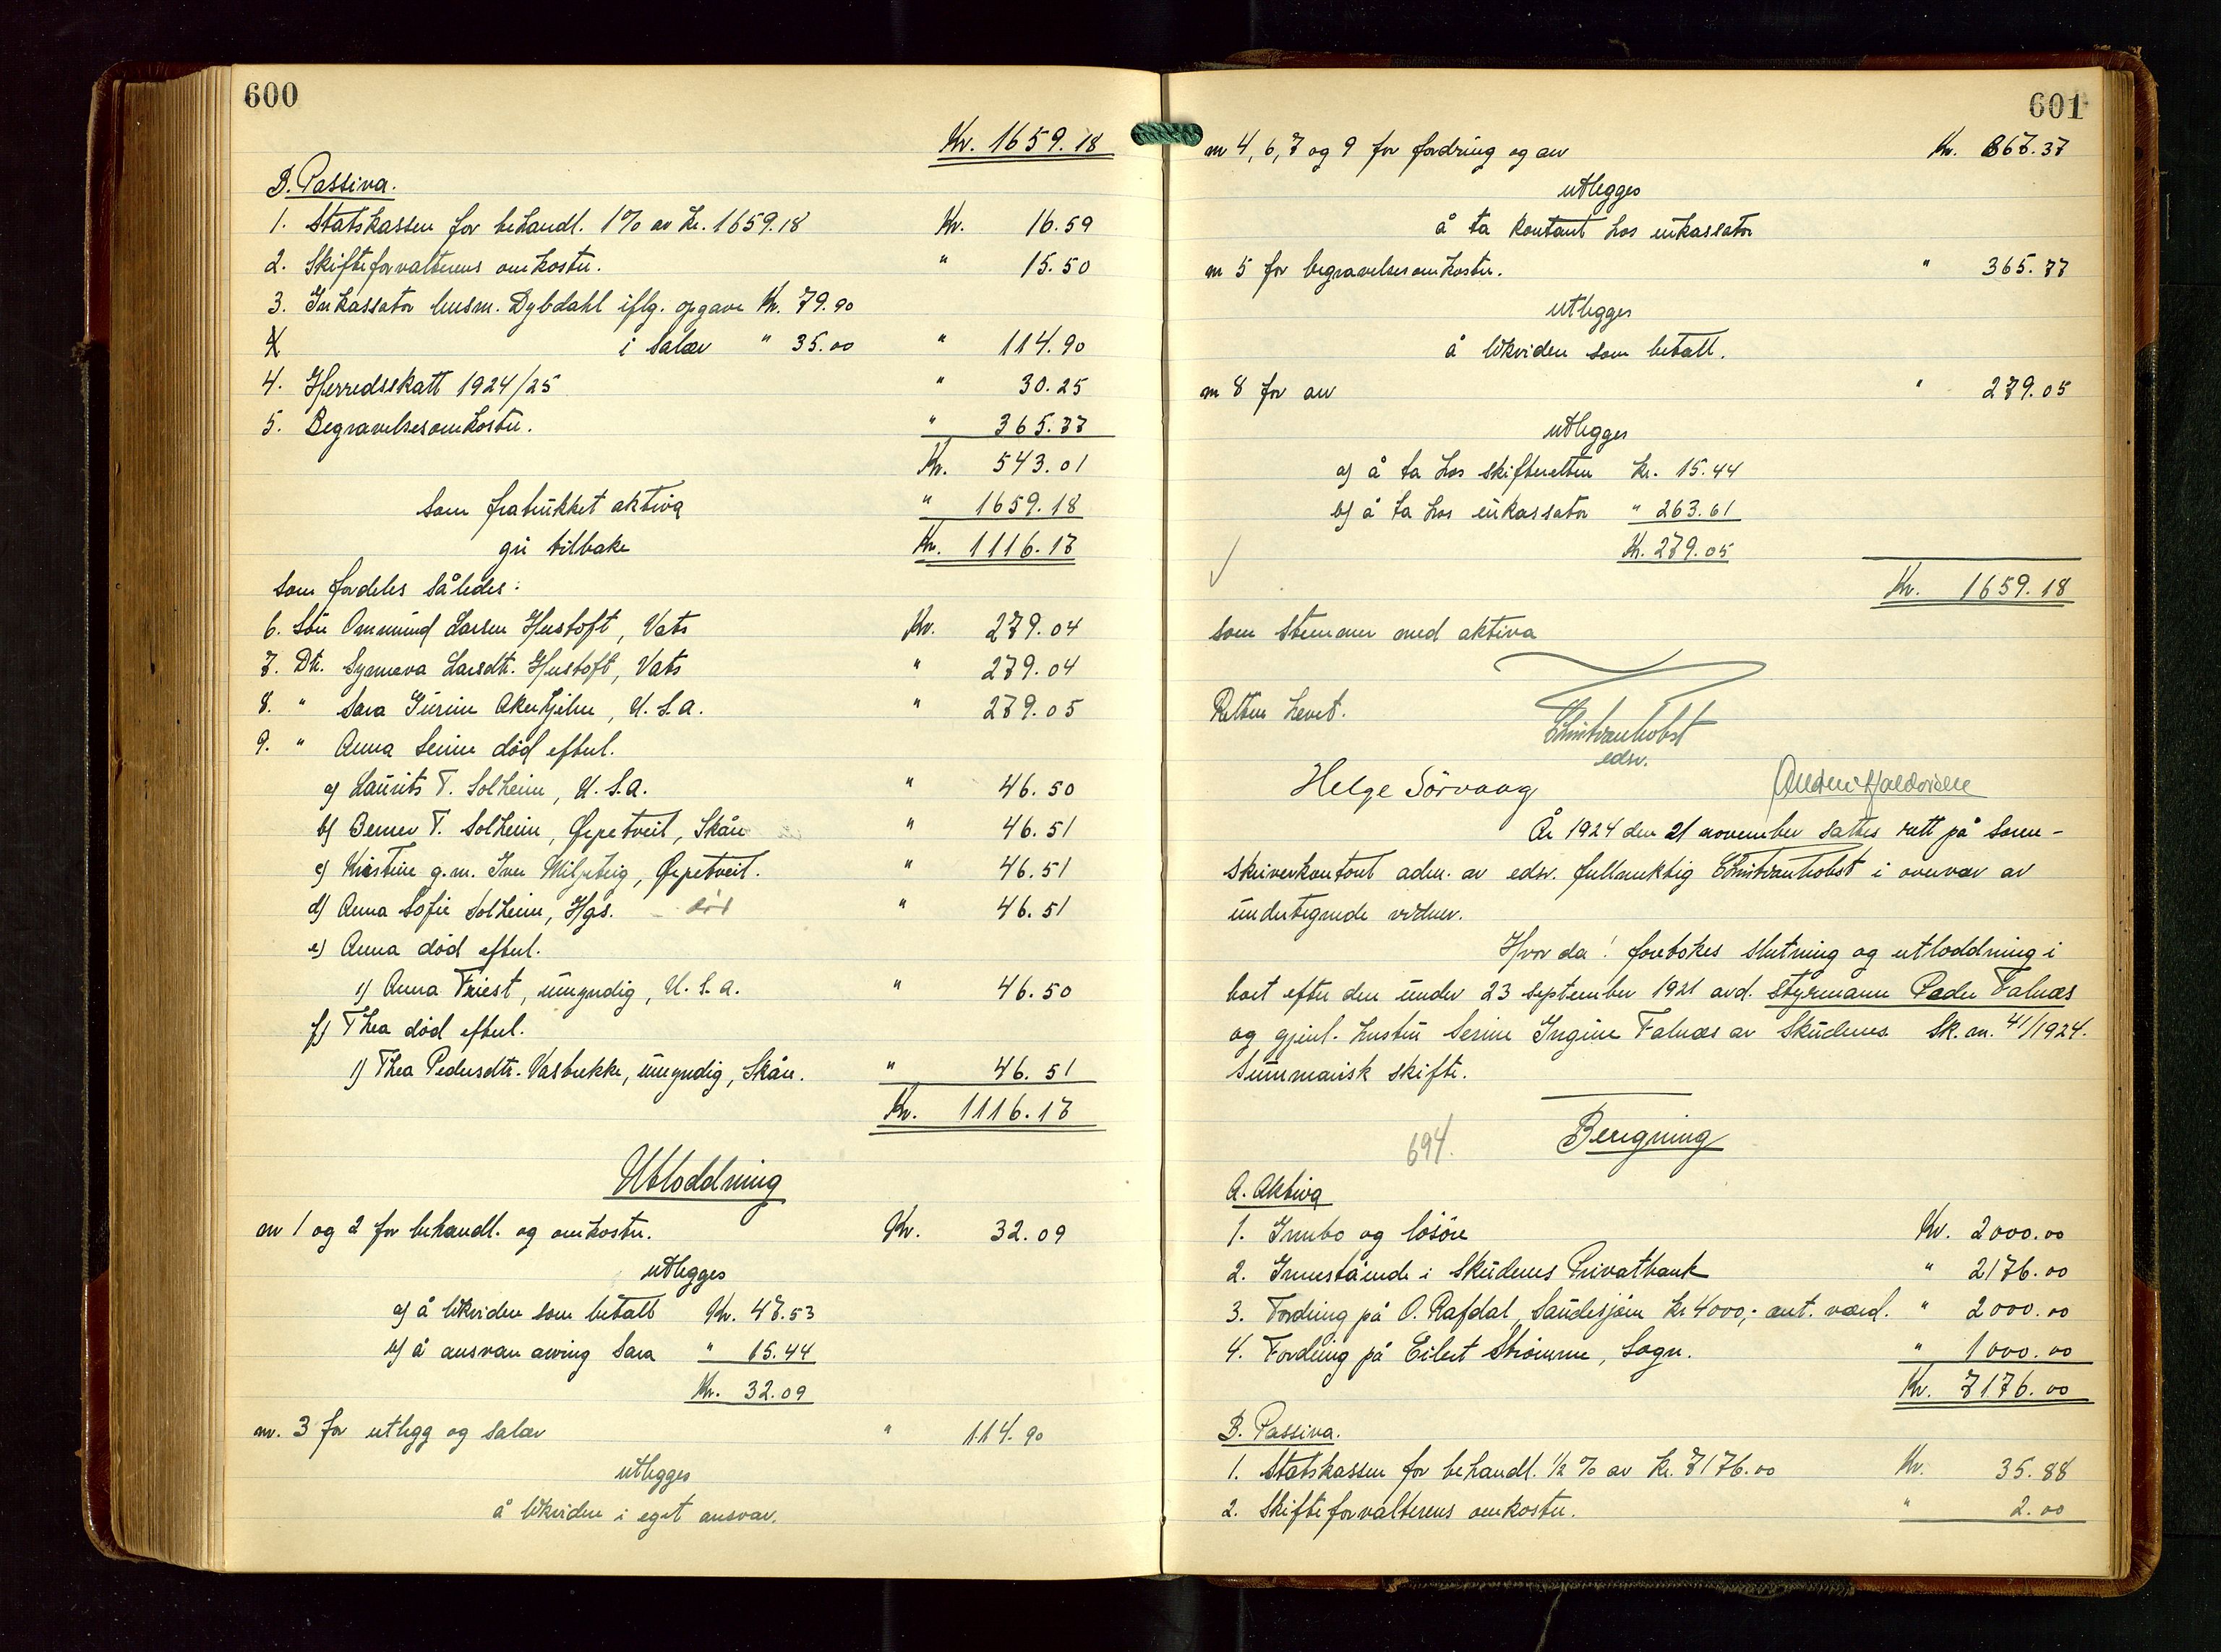 600
Kr. 1659.18
B. Passiva.
1. Statskassen for behandl. 1% av kr. 1659.18 Kr. 16.59
2. Skifteforvalterens omkostn. " 15.50
3. Inkassator lensm. Dybdahl iflg. opgave Kr. 79.90
i salær " 35.00 " 114.90
4. Herredsskatt 1924/25 " 30.25
5. Begravelsesomkostn. " 365.77
Kr. 543.01
som fratrukket aktiva " 1659.18
gir tilbake Kr. 1116.17
som fordeles således:
6. Sön Ommund Larsen Hustoft, Vats Kr. 279.04
7. Dtr. Synneva Larsdtr. Hustoft, Vats " 279.04
8. " Sara Gurine Akerhjelm, U.S.A. " 279.05
9. " Anna Serine död efterl.
a) Laurits T. Solheim, U.S.A. " 46.50
b) Berner T. Solheim, Örpetveit, Skån " 46.51
c) Kirstine g.m. Iver Miljeteig, Örpetveit. " 46.51
d) Anna Sofie Solheim, Hgs. - död " 46.51
e) Anna död efterl.
1) Anna Friest, umyndig, U.S.A. " 46.50
f) Thea död efterl.
1) Thea Pedersdtr. Vasbrekke, umyndig, Skån. " 46.51
Kr. 1116.17
Utloddning
nr 1 og 2 for behandl. og omkostn. Kr. 32.09
utlegges
a) å likviden som betalt Kr. 47.53
b) å ansvar arving Sara " 15.44
Kr. 32.09
nr. 3 for utlegg og salær " 114.90
utlegges
å likviden i eget ansvar.
601
nr 4, 6, 7 og 9 for fordring og arv Kr. 867.37
utlegges
å ta kontant hos inkassator
nr 5 for begravelsesomkostn. " 365.77
utlegges
å likviden som betalt.
nr 8 for arv " 279.05
utlegges
a) å ta hos skifteretten kr. 15.44
b) å ta hos inkassator " 263.61
Kr. 279.05
Kr. 1659.18
som stemmer med aktiva
Retten hevet.
edsv.
Helge Sörvaag
År 1924 den 21 november sattes rett på soren-
skriverkontoret adm. av edsv. fullmektig i overvær av
undertegnede vidner.
Hvor da! foretokes slutning og utloddning i
boet efter den under 23 september 1921 avd. styrmann Peder Falnæs
og gjenl. hustru Serine Ingine Falnæs av Skudenes Sk. nr. 41/1924.
Summarisk skifte.
694. Beregning
A. Aktiva
1. Innbo og lösöre Kr. 2000.00
2. Innestående i Skudenes Privatbank " 2176.00
3. Fordring på O. Rafdal, Saudesjøen kr 4000,- ant. verd. " 2000.00
4. Fordring på Eilert Strömme, Sogn. " 1000.00
Kr. 7176.00
B. Passiva.
1. Statskassen for behandl. 1/2 % av kr. 7176.00 Kr. 35.88
2. Skifteforvalterens omkostn. " 2.00